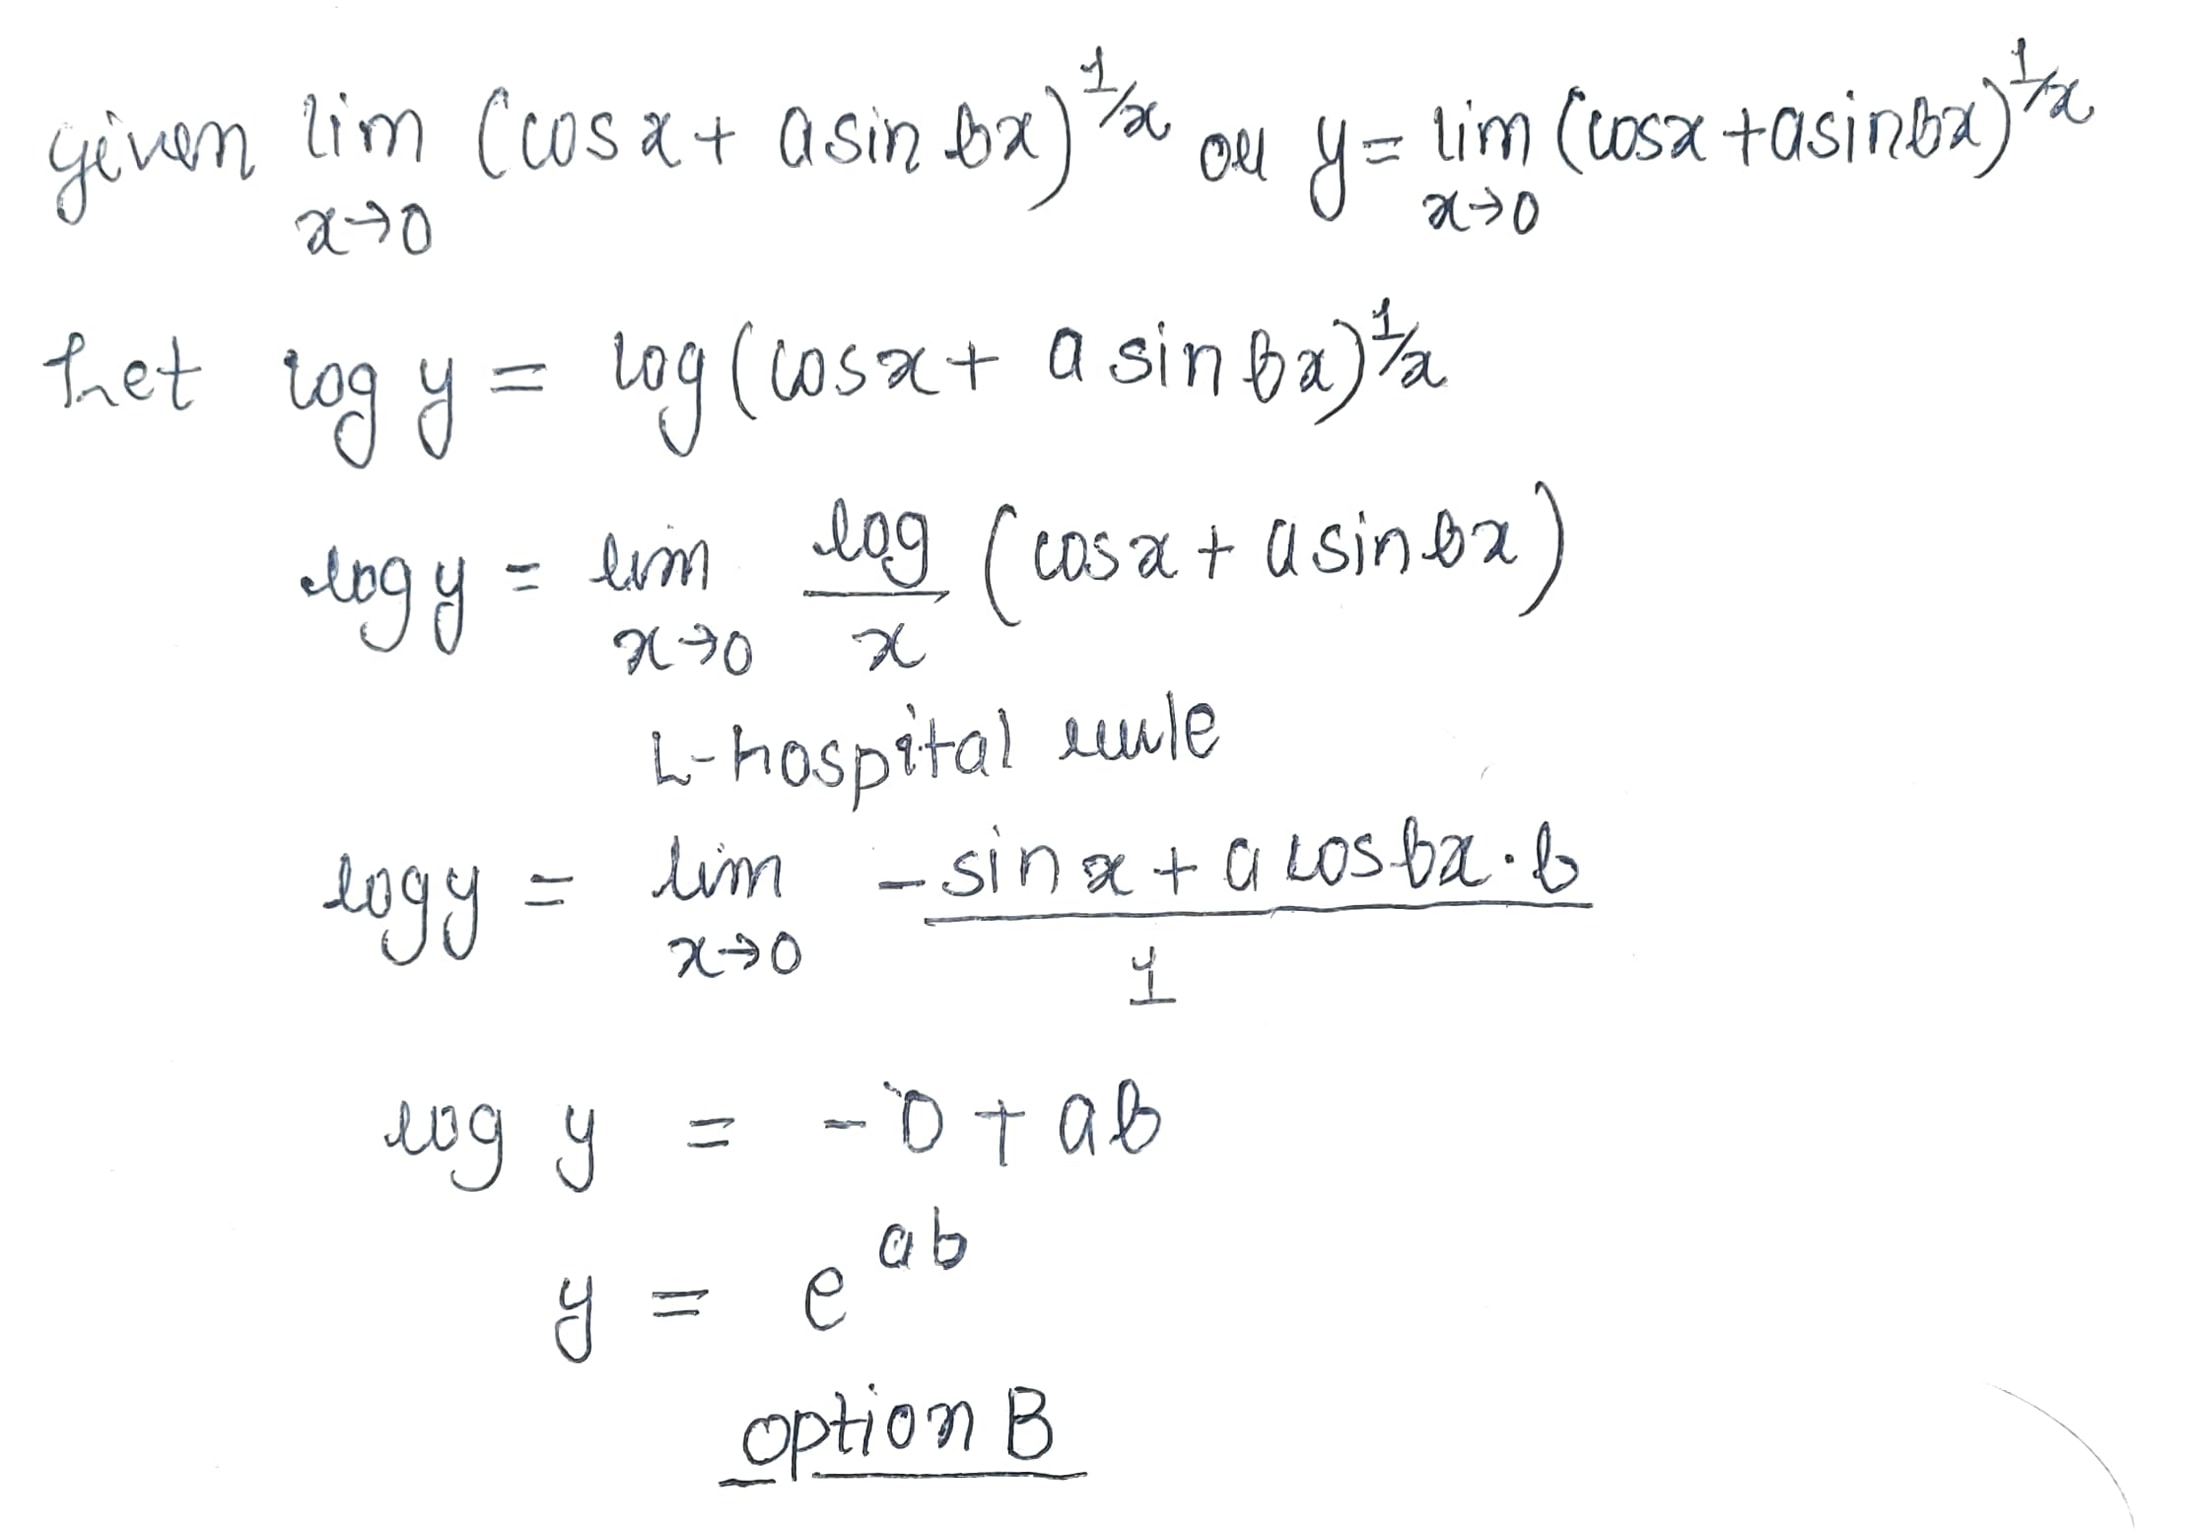 given lim x→0 (cosx + asin bx)^1/x or y = lim x→0 (cosx + asinbx)^1/x
Let log y = log (cosx + a sin bx)^1/x
log y = lim x→0 log/x (cosx + asinbx)
L-hospital rule
log y = lim x→0 -sinx + a cosbx·b / 1
log y = -0 + ab
y = e^ab
option B